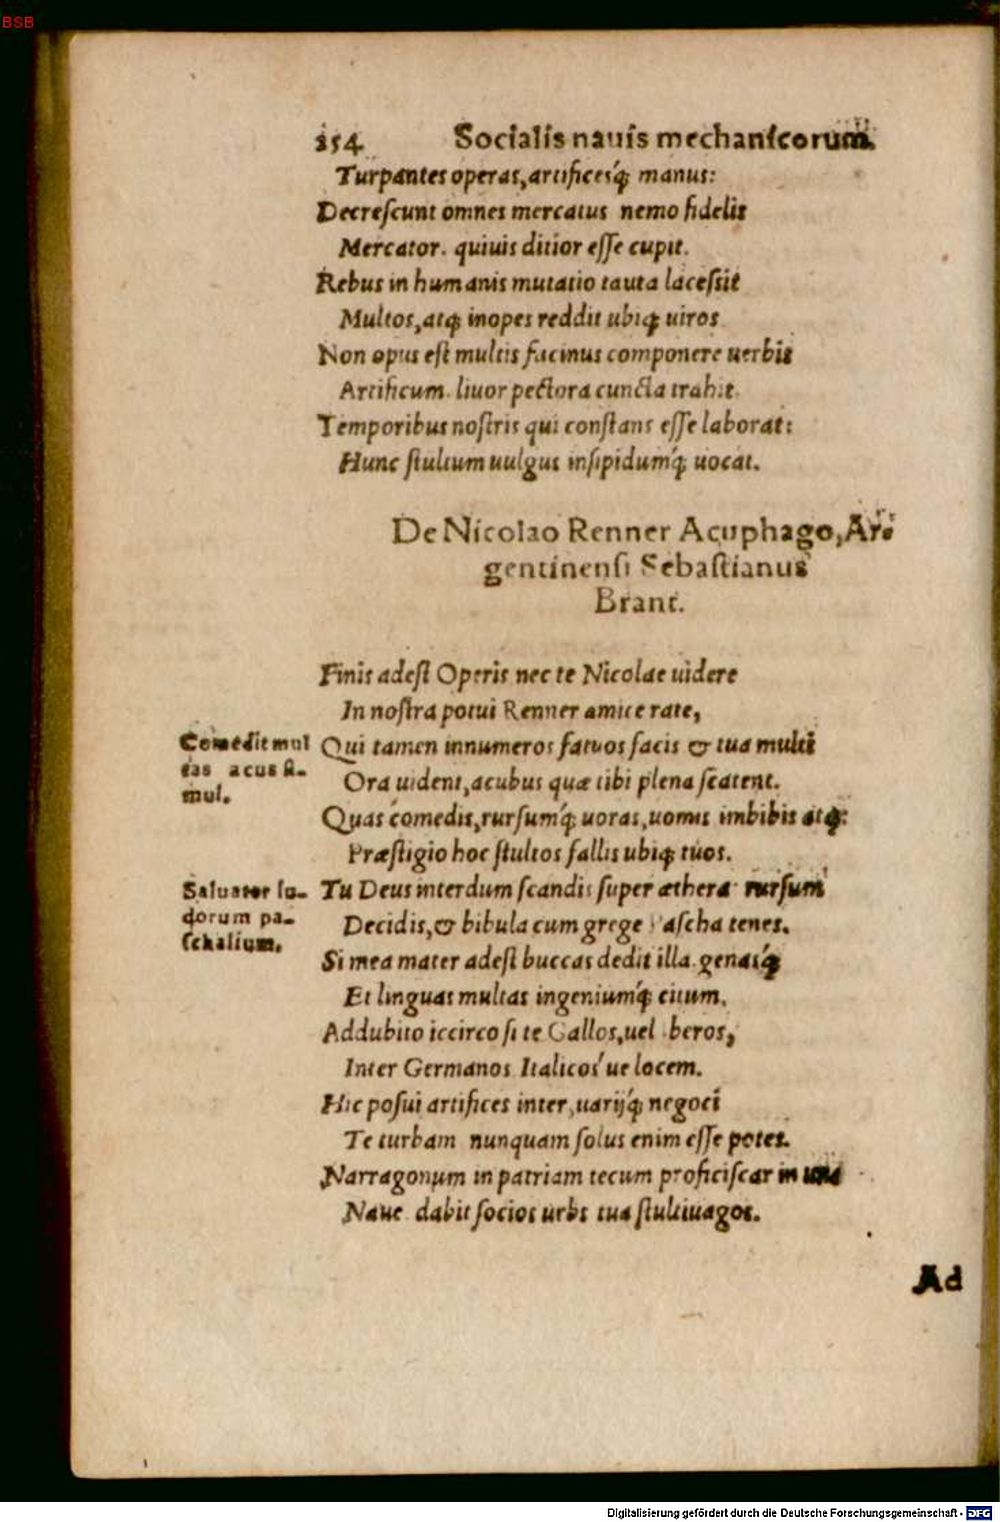 BSB
254 Socialis nauis mechanicorum.
Turpantes operas, artificesq́; manus:
Decrescunt omnes mercatus nemo fidelis
Mercator. quiuis ditior esse cupit.
Rebus in humanis mutatio tauta lacessit
Multos, atq; inopes reddit ubiq; uiros
Non opus est multis facinus componere uerbis
Artificum. liuor pectora cuncta trahit.
Temporibus nostris qui constans esse laborat:
Hunc stultum uulgus insipidumq́; uocat.
De Nicolao Renner Acuphago, Ar-
gentinensi Sebastianus
Brant.
Finis adest Operis nec te Nicolae uidere
In nostra potui Renner amice rate,
Comedit mul
tas acus si-
mul.
Qui tamen innumeros fatuos facis & tua multi
Ora uident, acubus quæ tibi plena scatent.
Quas comedis, rursumq́; uoras, uomis imbibis atq;:
Præstigio hoc stultos fallis ubiq; tuos.
Saluator Iu-
dorum pa-
schalium.
Tu Deus interdum scandis super æthera rursum
Decidis, & bibula cum grege Pascha tenes.
Si mea mater adest buccas dedit illa genasq́;
Et linguas multas ingeniumq́; citum.
Addubito iccirco si te Gallos, uel beros,
Inter Germanos Italicos'ue locem.
Hic posui artifices inter, uarijq́; negoci
Te turbam nunquam solus enim esse potes.
Narragonum in patriam tecum proficiscar in una
Naue dabit socios urbs tua stultiuagos.
Ad
Digitalisierung gefördert durch die Deutsche Forschungsgemeinschaft - DFG